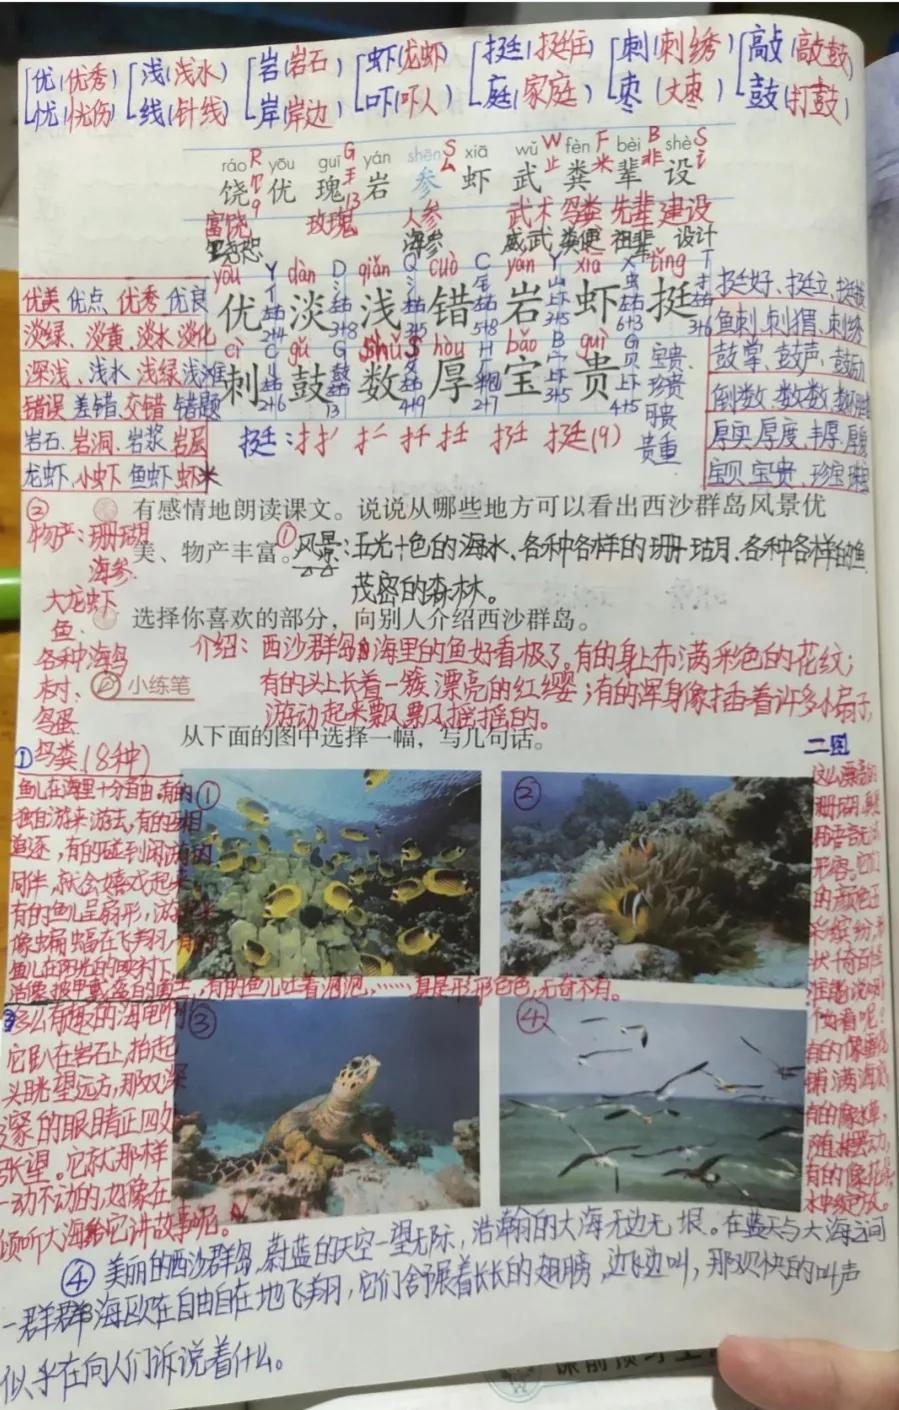 优(优秀) 浅(浅水) 岩(岩石) 虾(龙虾) 挺(挺住) 刺(刺绣) 敲(敲鼓)
忧(忧伤) 线(针线) 岸(岸边) 吓(吓人) 庭(家庭) 枣(大枣) 鼓(打鼓)
ráo yōu guī yán shēn xiā wǔ fèn bèi shè
饶 优 瑰 岩 参 虾 武 粪 辈 设
富饶 玫瑰 人参 武术 鸟粪 先辈 建设
海参 威武 粪便 祖辈 设计
yōu dàn qiǎn cuò yán xiā tǐng
优 淡 浅 错 岩 虾 挺
cì gǔ shǔ hòu bǎo guì
刺 鼓 数 厚 宝 贵
优美 优点、优秀、优良
淡绿、淡黄、淡水 淡化
深浅、浅水、浅绿 浅滩
错误 差错、交错 错题
岩石、岩洞、岩浆、岩层
龙虾、小虾 鱼虾、虾米
挺好、挺立、挺拔
鱼刺、刺猬、刺绣
鼓掌、鼓声、鼓励
倒数、数数、
厚实、厚度、丰厚、
宝贝、宝贵、珍宝
宝贵
珍贵
可贵
贵重
挺：(9)
有感情地朗读课文。说说从哪些地方可以看出西沙群岛风景优
美、物产丰富。①风景：五光十色的海水、各种各样的珊瑚、各种各样的鱼
茂密的森林。
②
物产：珊瑚
海参
大龙虾
鱼
各种海鸟
树
鸟蛋
鸟类(8种)
选择你喜欢的部分，向别人介绍西沙群岛。
介绍：西沙群岛的海里的鱼好看极了。有的身上布满彩色的花纹；
有的头上长着一簇漂亮的红缨；有的浑身像插着许多小扇子，
游动起来飘飘摇摇的。
小练笔
从下面的图中选择一幅，写几句话。
①
鱼儿在海里十分自由，有的
独自游来游去，有的互相
追逐，有的碰到闲游的
同伴，就会嬉戏起来
有的鱼儿呈扇形，游起来
像蝙蝠在飞翔，有的
鱼儿在阳光的映衬下
活像披甲戴盔的勇士，有的鱼儿吐着泡泡，……真是形形色色，无奇不有。
①
②
③
④
二图
这么漂亮的
珊瑚 真是
用语言无法
形容。它们
的颜色五
彩缤纷 形
状千奇百怪
谁能说哪
个好看呢？
有的像
铺满海底
有的像水草，
随
有的像花朵
水中绽放。
③
多么有趣的海龟啊
它趴在岩石上，抬起
头眺望远方，那双深
邃的眼睛正四处
张望。它就那样
一动不动的，好像在
倾听大海给它讲故事呢。
④ 美丽的西沙群岛，蔚蓝的天空一望无际，浩瀚的大海无边无垠。在蓝天与大海之间
一群群海鸥在自由自在地飞翔，它们舒展着长长的翅膀，边飞边叫，那欢快的叫声
似乎在向人们诉说着什么。